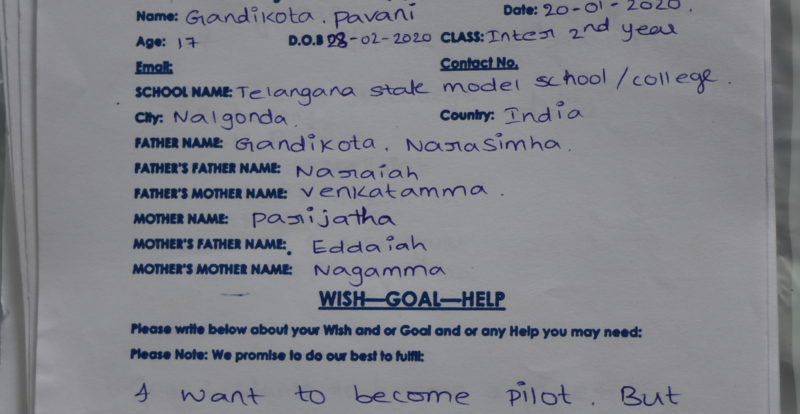 Name: Gandikota. pavani Date: 20-01-2020.
Age: 17 D.O.B 28-02-2020 CLASS: Inter 2nd year
Email: Contact No.
SCHOOL NAME: Telangana state model school/college.
City: Nalgonda. Country: India
FATHER NAME: Gandikota. Narasimha.
FATHER'S FATHER NAME: Naraiah
FATHER'S MOTHER NAME: Venkatamma.
MOTHER NAME: parijatha
MOTHER'S FATHER NAME: Eddaiah
MOTHER'S MOTHER NAME: Nagamma
WISH—GOAL—HELP
Please write below about your Wish and or Goal and or any Help you may need:
Please Note: We promise to do our best to fulfil:
I want to become pilot. But